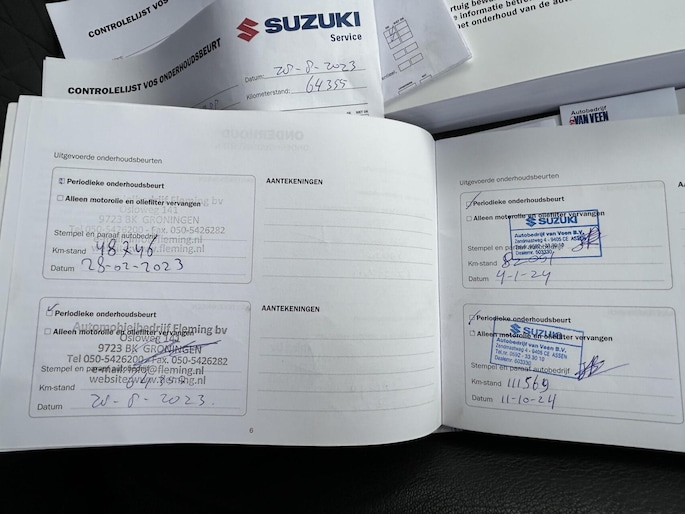 CONTROLELIJST VOS ONDERHOUDSBEURT
SUZUKI
Service
Datum: 28-8-2023
Kilometerstand: 64355
CONTROLELIJST VOS ONDERHOUDSBEURT
rtuig bew
e informatie betre
het onderhoud van de auto
Autobedrijf
VAN VEEN
Uitgevoerde onderhoudsbeurten
Periodieke onderhoudsbeurt
Alleen motorolie en oliefilter vervangen
Osloweg 141
9723 BK GRONINGEN
Tel 050-5426200 - Fax. 050-5426282
Stempel en paraaf autobedrijf
Km-stand 48246
Datum 28-02-2023
AANTEKENINGEN
Periodieke onderhoudsbeurt
Automobielbedrijf Fleming bv
Alleen motorolie en oliefilter vervangen
Osloweg 141
9723 BK GRONINGEN
Tel 050-5426200 - Fax. 050-5426282
Stempel en paraaf autobedrijf
e-mail: info@fleming.nl
Km-stand
website: www.fleming.nl
Datum 28-8-2023.
AANTEKENINGEN
6
Uitgevoerde onderhoudsbeurten
Periodieke onderhoudsbeurt
Alleen motorolie en oliefilter vervangen
SUZUKI
Autobedrijf van Veen B.V.
Zendmastweg 4 - 9405 CE ASSEN
Stempel en paraaf
Km-stand
Datum 4-1-24
Periodieke onderhoudsbeurt
Alleen motorolie en oliefilter vervangen
SUZUKI
Autobedrijf van Veen B.V.
Zendmastweg 4 - 9405 CE ASSEN
Tel.nr. 0592 - 33 30 10
Dealernr. 503330
Stempel en paraaf autobedrijf
Km-stand 111569
Datum 11-10-24